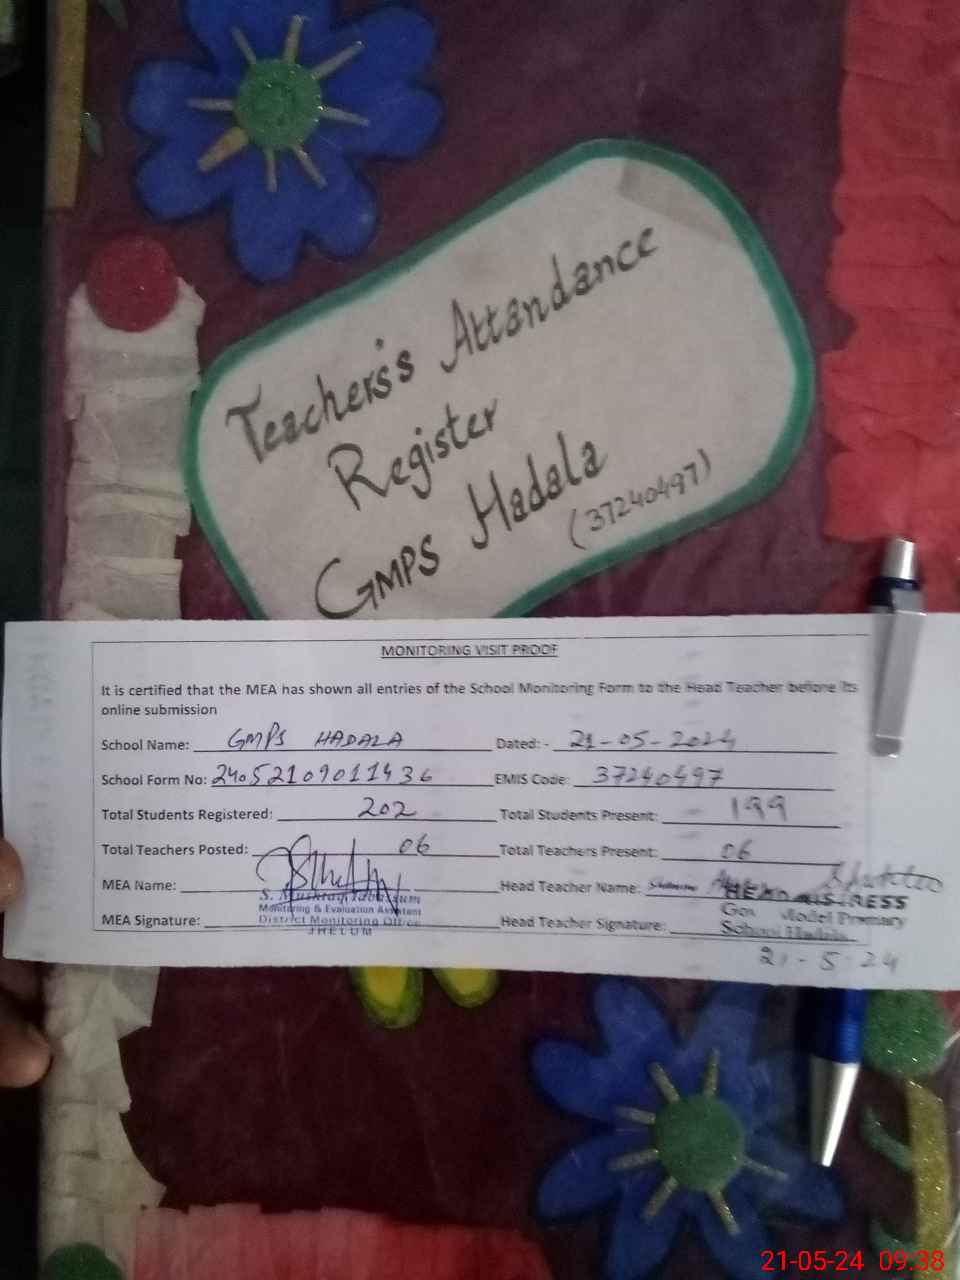 Teachers's Attandance
Register
GMPS Hadala
(37240497)
MONITORING VISIT PROOF
It is certified that the MEA has shown all entries of the School Monitoring Form to the Head Teacher before its
online submission
School Name: GMPS HADALA Dated: - 21-05-2024
School Form No: 24052109011436 EMIS Code: 37240497
Total Students Registered: 202 Total Students Present: 199
Total Teachers Posted: 06 Total Teachers Present: 06
MEA Name: Head Teacher Name:
HEADMISTRESS
Monitoring & Evaluation Assistant
Model Primary
MEA Signature: District Monitoring Office Head Teacher Signature: School Hadala
JHELUM
21-5-24
21-05-24 09:38